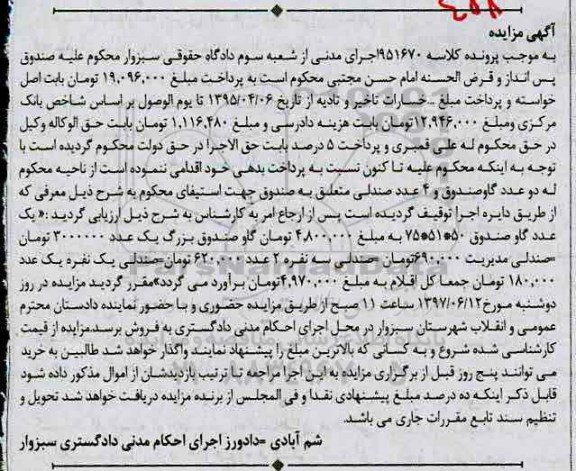 آگهی مزایده
به موجب پرونده کلاسه ۹۵۱۶۷۰اجرای مدنی از شعبه سوم دادگاه حقوقی سبزوار محکوم علیه صندوق
پس انداز و قرض الحسنه امام حسن مجتبی محکوم است به پرداخت مبلغ ۱۹,۰۹۶,۰۰۰ تومان بابت اصل
خواسته و پرداخت مبلغ خسارات تاخیر و تادیه از تاریخ ۱۳۹۵/۰۴/۰۶ تا یوم الوصول بر اساس شاخص بانک
مرکزی ومبلغ ۱۲,۹۴۶,۰۰۰تومان بابت هزینه دادرسی و مبلغ ۱,۱۱۶,۴۸۰ تومان بابت حق الوکاله وکیل
در حق محکوم له علی قمبری و پرداخت ۵ درصد بابت حق الاجرا در حق دولت محکوم گردیده است با
توجه به اینکه محکوم علیه تا کنون نسبت به پرداخت بدهی خود اقدامی ننموده است از ناحیه محکوم
له دو عدد گاوصندوق و ۴ عدد صندلی متعلق به صندوق جهت استیفای محکوم به شرح ذیل معرفی که
از طریق دایره اجرا توقیف گردیده است پس از ارجاع امر به کارشناس به شرح ذیل ارزیابی گردید :« یک
عدد گاو صندوق ۵۰*۵۱*۷۵ به مبلغ ۴,۸۰۰,۰۰۰ تومان گاو صندوق بزرگ یک عدد ۳۰۰۰۰۰۰ تومان
-صندلی مدیریت ۶۹۰,۰۰۰تومان -صندلی سه نفره ۲ عدد ۶۲۰,۰۰۰ تومان-صندلی یک نفره یک عدد
۱۸۰,۰۰۰ تومان جمعا کل اقلام به مبلغ ۴,۹۷۰,۰۰۰تومان برآورد می گردد»مقرر گردید مزایده در روز
دوشنبه مورخ۱۳۹۷/۰۶/۱۲ ساعت ۱۱ صبح از طریق مزایده حضوری و با حضور نماینده دادستان محترم
عمومی و انقلاب شهرستان سبزوار در محل اجرای احکام مدنی دادگستری به فروش برسد.مزایده از قیمت
کارشناسی شده شروع و به کسانی که بالاترین مبلغ را پیشنهاد نمایند واگذار خواهد شد طالبین به خرید
می توانند پنج روز قبل از برگزاری مزایده به این اجرا مراجعه تا ترتیب بازدیدشان از اموال مذکور داده شود
قابل ذکر اینکه ده درصد مبلغ پیشنهادی نقدا و فی المجلس از برنده مزایده دریافت خواهد شد تحویل و
تنظیم سند تابع مقررات جاری می باشد.
شم آبادی -دادورز اجرای احکام مدنی دادگستری سبزوار